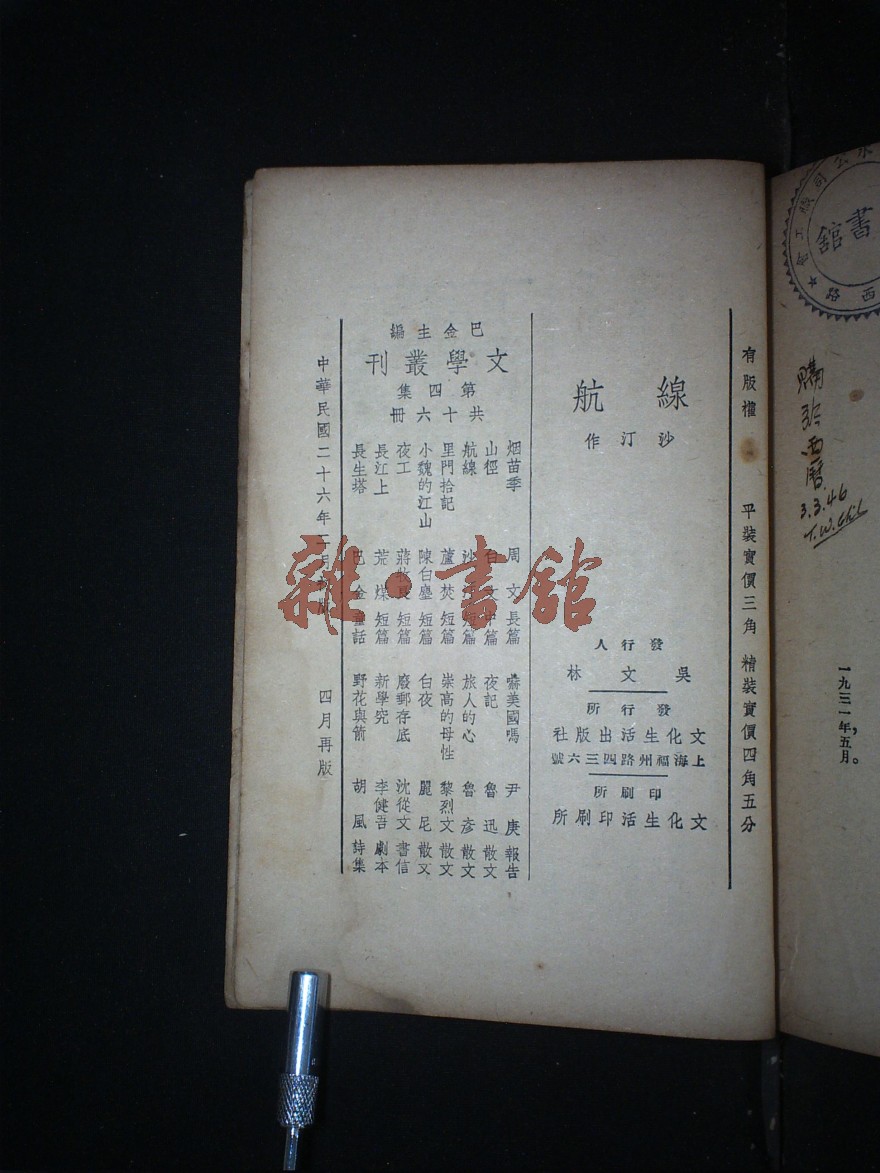 有版權 平裝實價三角 精裝實價四角五分
航線
沙汀作
發行人
吳文林
發行所
文化生活出版社
上海福州路四三六號
印刷所
文化生活印刷所
巴金主編
文學叢刊
第四集
共十六冊
烟苗季 周文 長篇
山徑 白文 中篇
航線 沙汀 短篇
里門拾記 蘆焚 短篇
小魏的江山 陳白塵 短篇
夜工 蔣牧良 短篇
長江上 荒煤 短篇
長生塔 巴金 童話
嚇美國嗎 尹庚 報告
夜記 魯迅 散文
旅人的心 魯彥 散文
崇高的母性 黎烈文 散文
白夜 麗尼 散文
廢郵存底 沈從文 書信
新學究 李健吾 劇本
野花與箭 胡風 詩集
中華民國二十六年二月初版
四月再版
雜·書館
公司職工會
書館
西路
購於西曆
3.3.46
一九三一年五月。